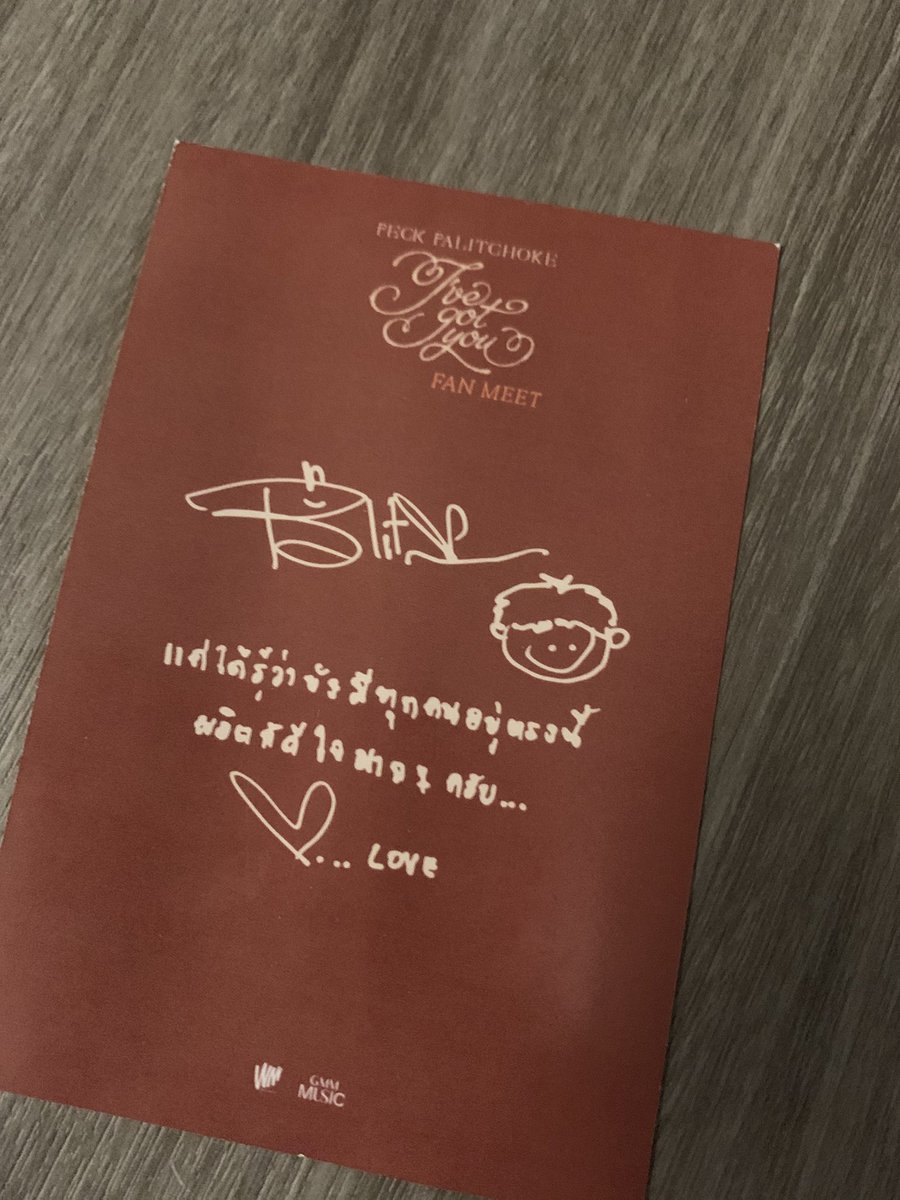 PECK PALITCHOKE
I've
got
you
FAN MEET
แค่ได้รู้ว่ายังมีทุกคนอยู่ตรงนี้
ผลิตก็ดีใจมากๆ ครับ...
... LOVE
WM
GMM
MUSIC